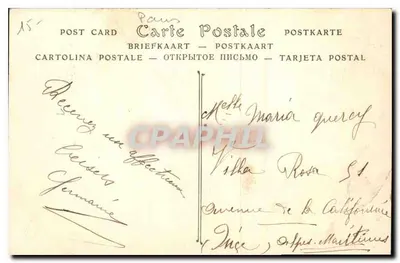 15-
Paris
POST CARD Carte Postale POSTKARTE
BRIEFKAART — POSTKAART
CARTOLINA POSTALE — ОТКРЫТОЕ ПИСЬМО — TARJETA POSTAL
Recevez un affectueux
baisers
Germaine
Melle Maria Quercy
Villa Rosa 51
avenue de la Californie
Nice, Alpes-Maritimes
CPAPHIL